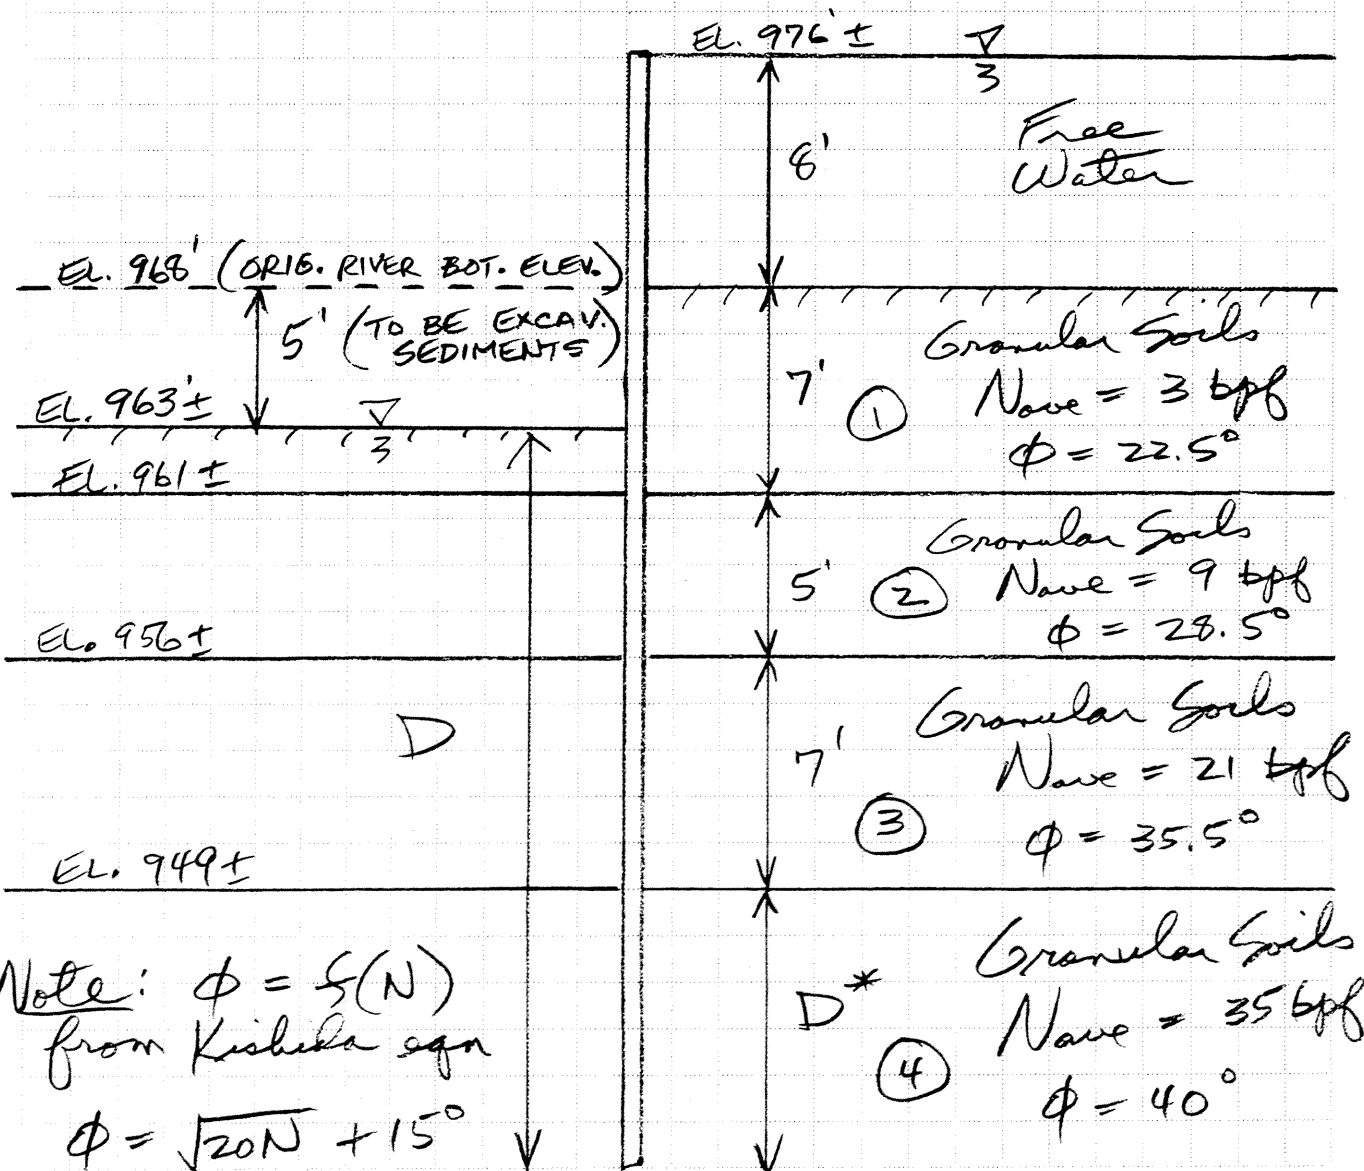 EL. 976'±
3
Free
Water
8'
EL. 968' (ORIG. RIVER BOT. ELEV.)
5' (TO BE EXCAV. SEDIMENTS)
EL. 963'±
3
EL. 961±
7'
1
Granular Soils
Nave = 3 bpf
φ = 22.5°
5'
2
Granular Soils
Nave = 9 bpf
φ = 28.5°
EL. 956±
D
7'
3
Granular Soils
Nave = 21 bpf
φ = 35.5°
EL. 949±
D*
4
Granular Soils
Nave = 35 bpf
φ = 40°
Note: φ = f(N)
from Kishida eqn
φ = √20N + 15°